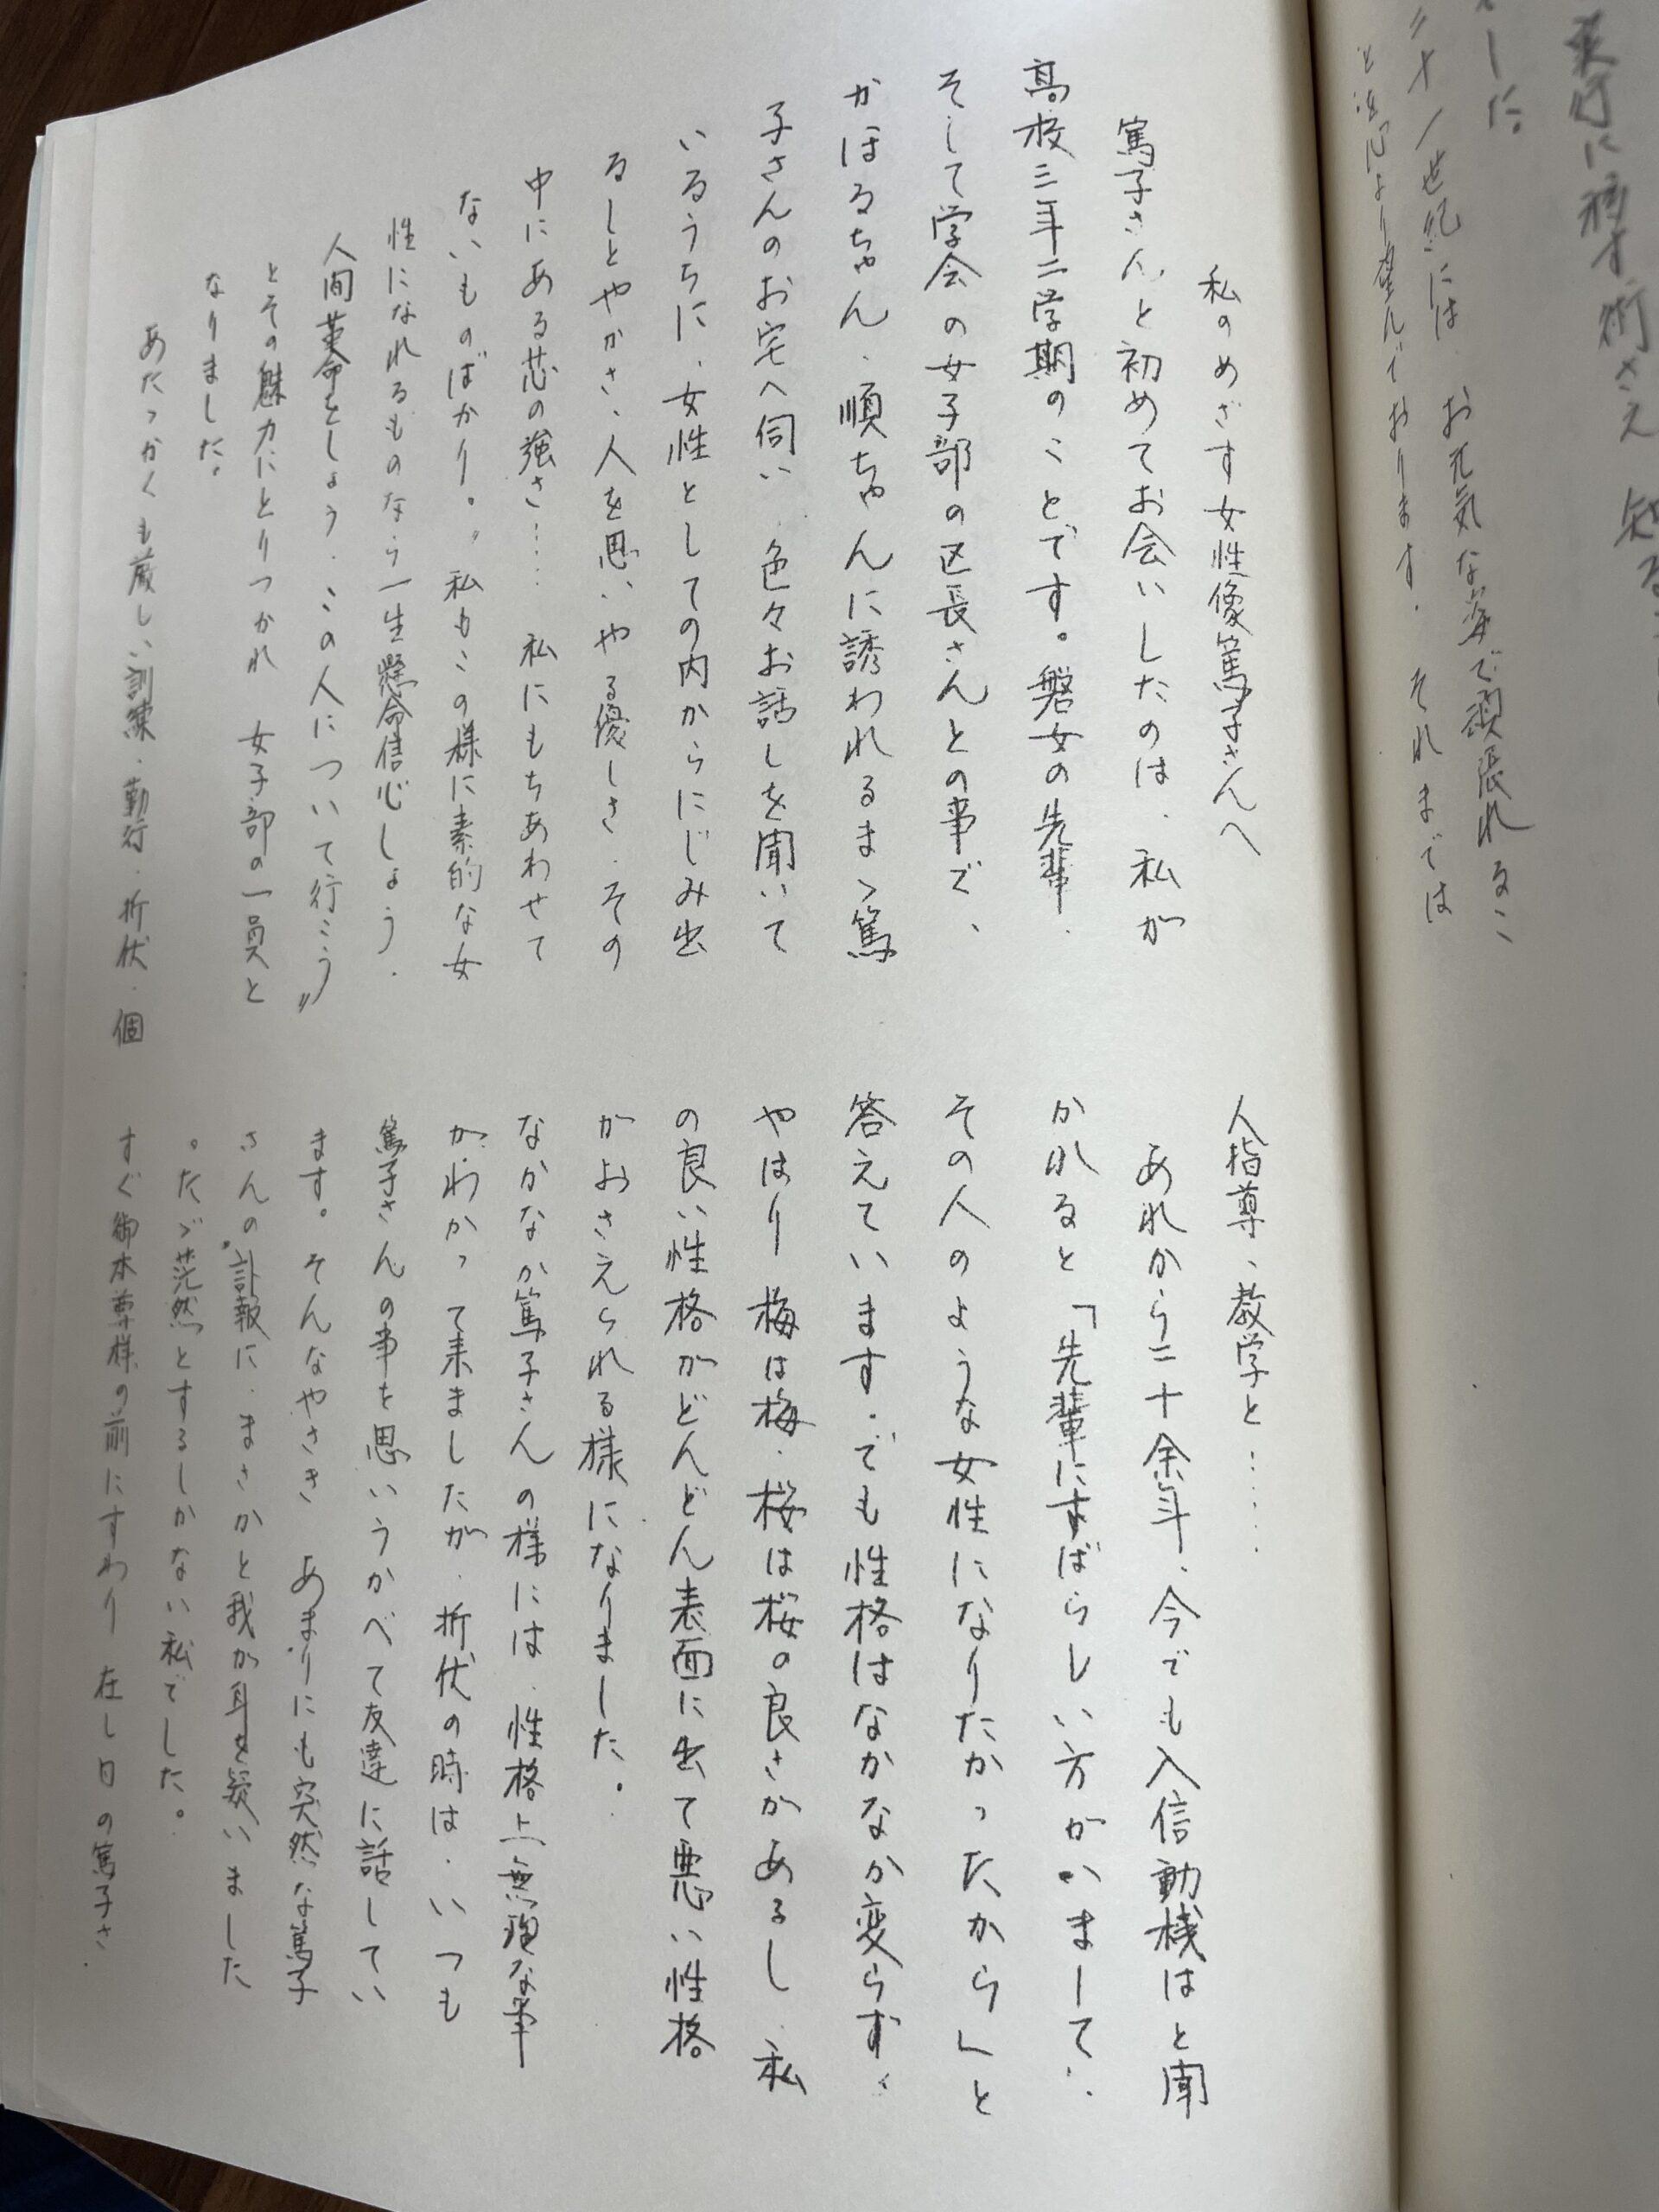 知る
来行に 術さえ
した。
二十一世紀には お元気な姿で頑張れるこ
と決心より望んでおります. それまでは
私のめざす女性像篤子さんへ
篤子さんと初めてお会いしたのは、私が
高校三年二学期のことです。磐女の先輩.
そして学会の女子部の区長さんとの事で、
かほるちゃん、順ちゃんに誘われるまゝ篤
子さんのお宅へ伺い 色々お話しを聞いて
いるうちに、女性としての内からにじみ出
るしとやかさ、人を思いやる優しさ、その
中にある芯の強さ…… 私にもちあわせて
ないものばかり。〝私もこの様に素的な女
性になれるものなら一生懸命信心しよう.
人間革命をしよう. この人について行こう〟
とその魅力にとりつかれ 女子部の一員と
なりました。
あたゝかくも厳しい訓練、勤行、折伏、個
人指導、教学と……
あれから二十余年、今でも入信動機はと聞
かれると「先輩にすばらしい方がいまして、
その人のような女性になりたかったから」と
答えています. でも性格はなかなか変らず、
やはり梅は梅、桜は桜の良さがあるし 私
の良い性格がどんどん表面に出て悪い性格
がおさえられる様になりました。
なかなか篤子さんの様には、性格上無理な事
がわかって来ましたが、折伏の時は、いつも
篤子さんの事を思いうかべて友達に話してい
ます。そんなやさき あまりにも突然な篤子
さんの訃報に、まさかと我が耳を疑いました
。たゞ茫然とするしかない私でした。
すぐ御本尊様の前にすわり 在し日の篤子さ